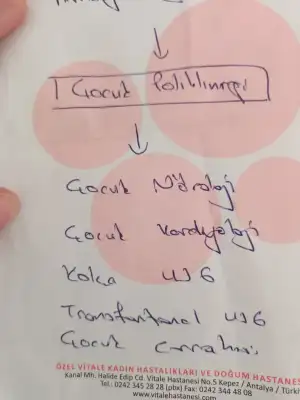 Çocuk Polikliniği
Çocuk Nöroloji
Çocuk Kardiyoloji
Kalça USG
Transfontanel USG
Çocuk Cerrahisi
ÖZEL VİTALE KADIN HASTALIKLARI VE DOĞUM HASTANESİ
Kanal Mh. Halide Edip Cd. Vitale Hastanesi No.5 Kepez / Antalya / Türki
Tel.: 0242 345 28 28 (pbx) Fax: 0242 344 48 08
www.vitalehastanesi.com